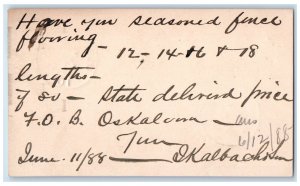 Have you seasoned fence
flooring —
12-, 14-16 & 18
lengths —
If so — state delivered price
F.O.B. Oskaloosa — ans
6/12/88
Yours
June. 11/88 —